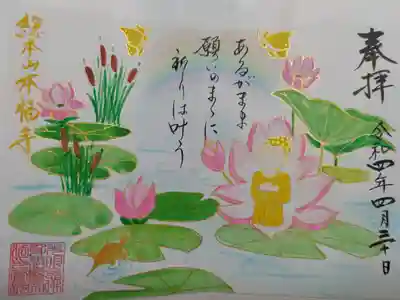 奉拝
令和四年四月三十日
あるがまま
願いのまゝに
祈りは叶う
本山本福寺